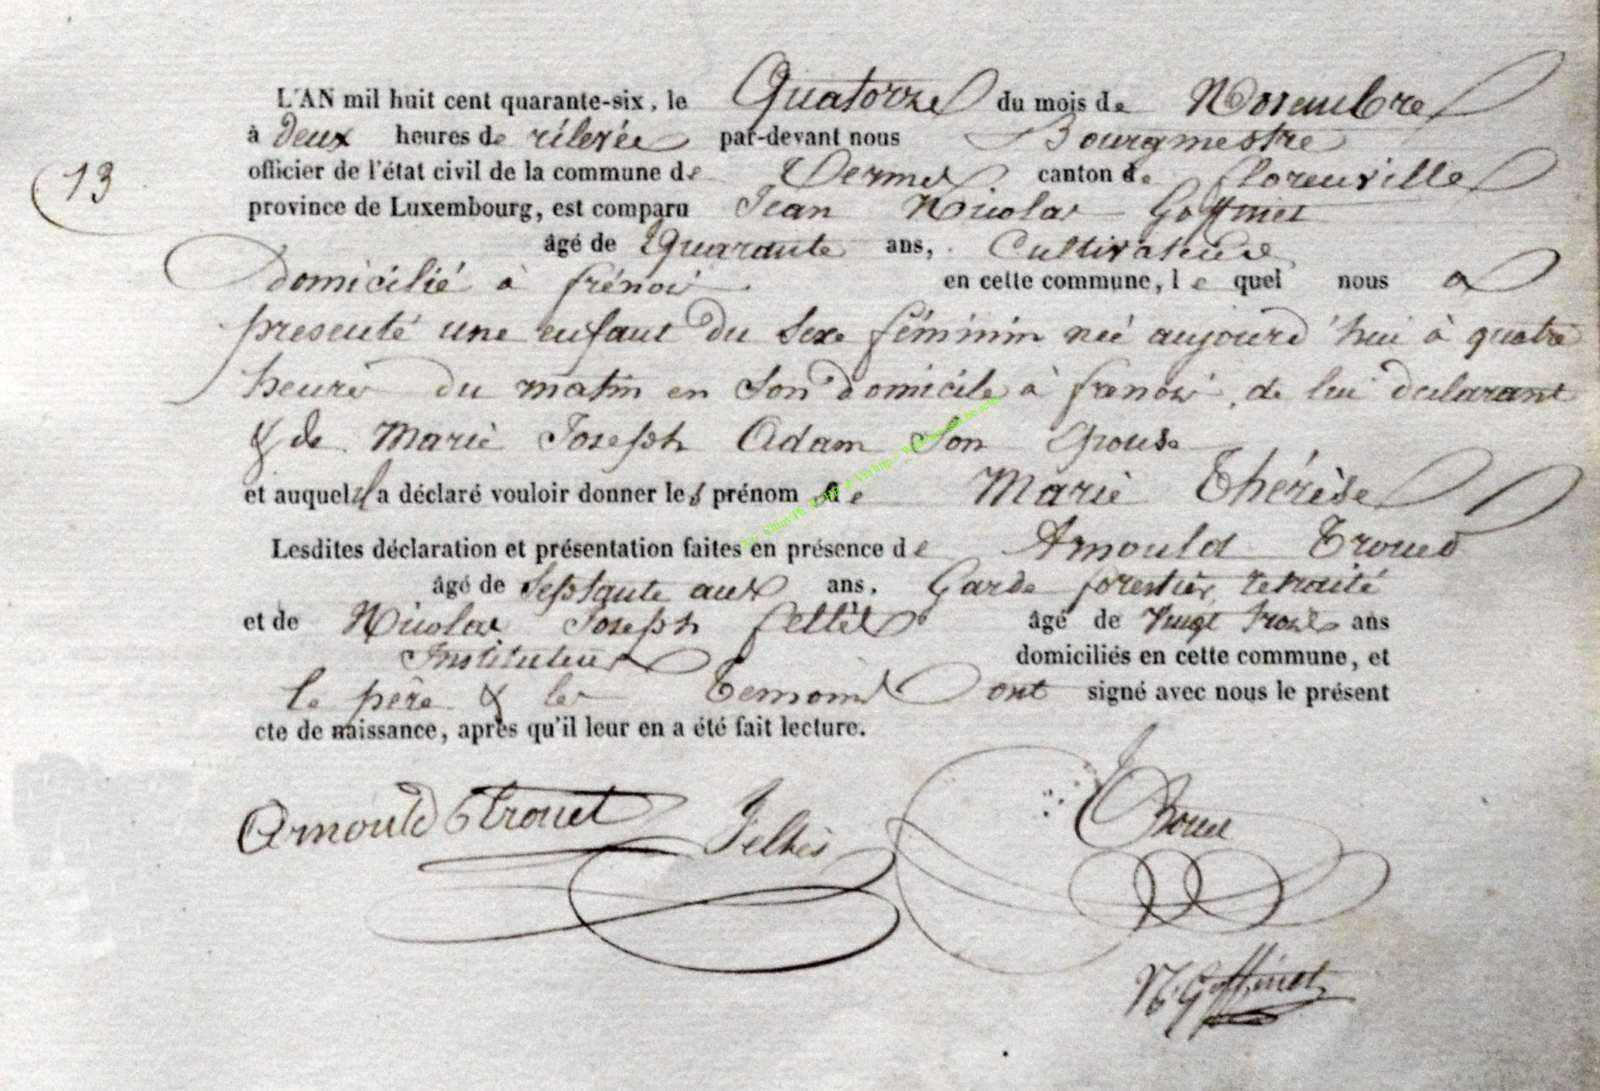 L'AN mil huit cent quarante-six, le Quatorze du mois de Novembre
à deux heures de rélevée par-devant nous Bourgmestre
officier de l'état civil de la commune de Termes canton de florenville
13
province de Luxembourg, est comparu Jean Nicolas Goffinet
âgé de Quarante ans, Cultivateur
domicilié à frénois en cette commune, le quel nous a
presenté une enfant du sexe féminin née aujourd'hui à quatre
heures du matin en son domicile à frenois, de lui declarant
& de Marie Joseph Adam son Epouse
et auquel il a déclaré vouloir donner les prénom de Marie Thérèse
Lesdites déclaration et présentation faites en présence de Arnould Trouet
âgé de Septante ans, Garde forestier retraité
et de Nicolas Joseph feltès âgé de vingt trois ans
Instituteur domiciliés en cette commune, et
le père & les Temoins ont signé avec nous le présent
cte de naissance, après qu'il leur en a été fait lecture.
Arnould Trouet Feltès
N. Goffinet